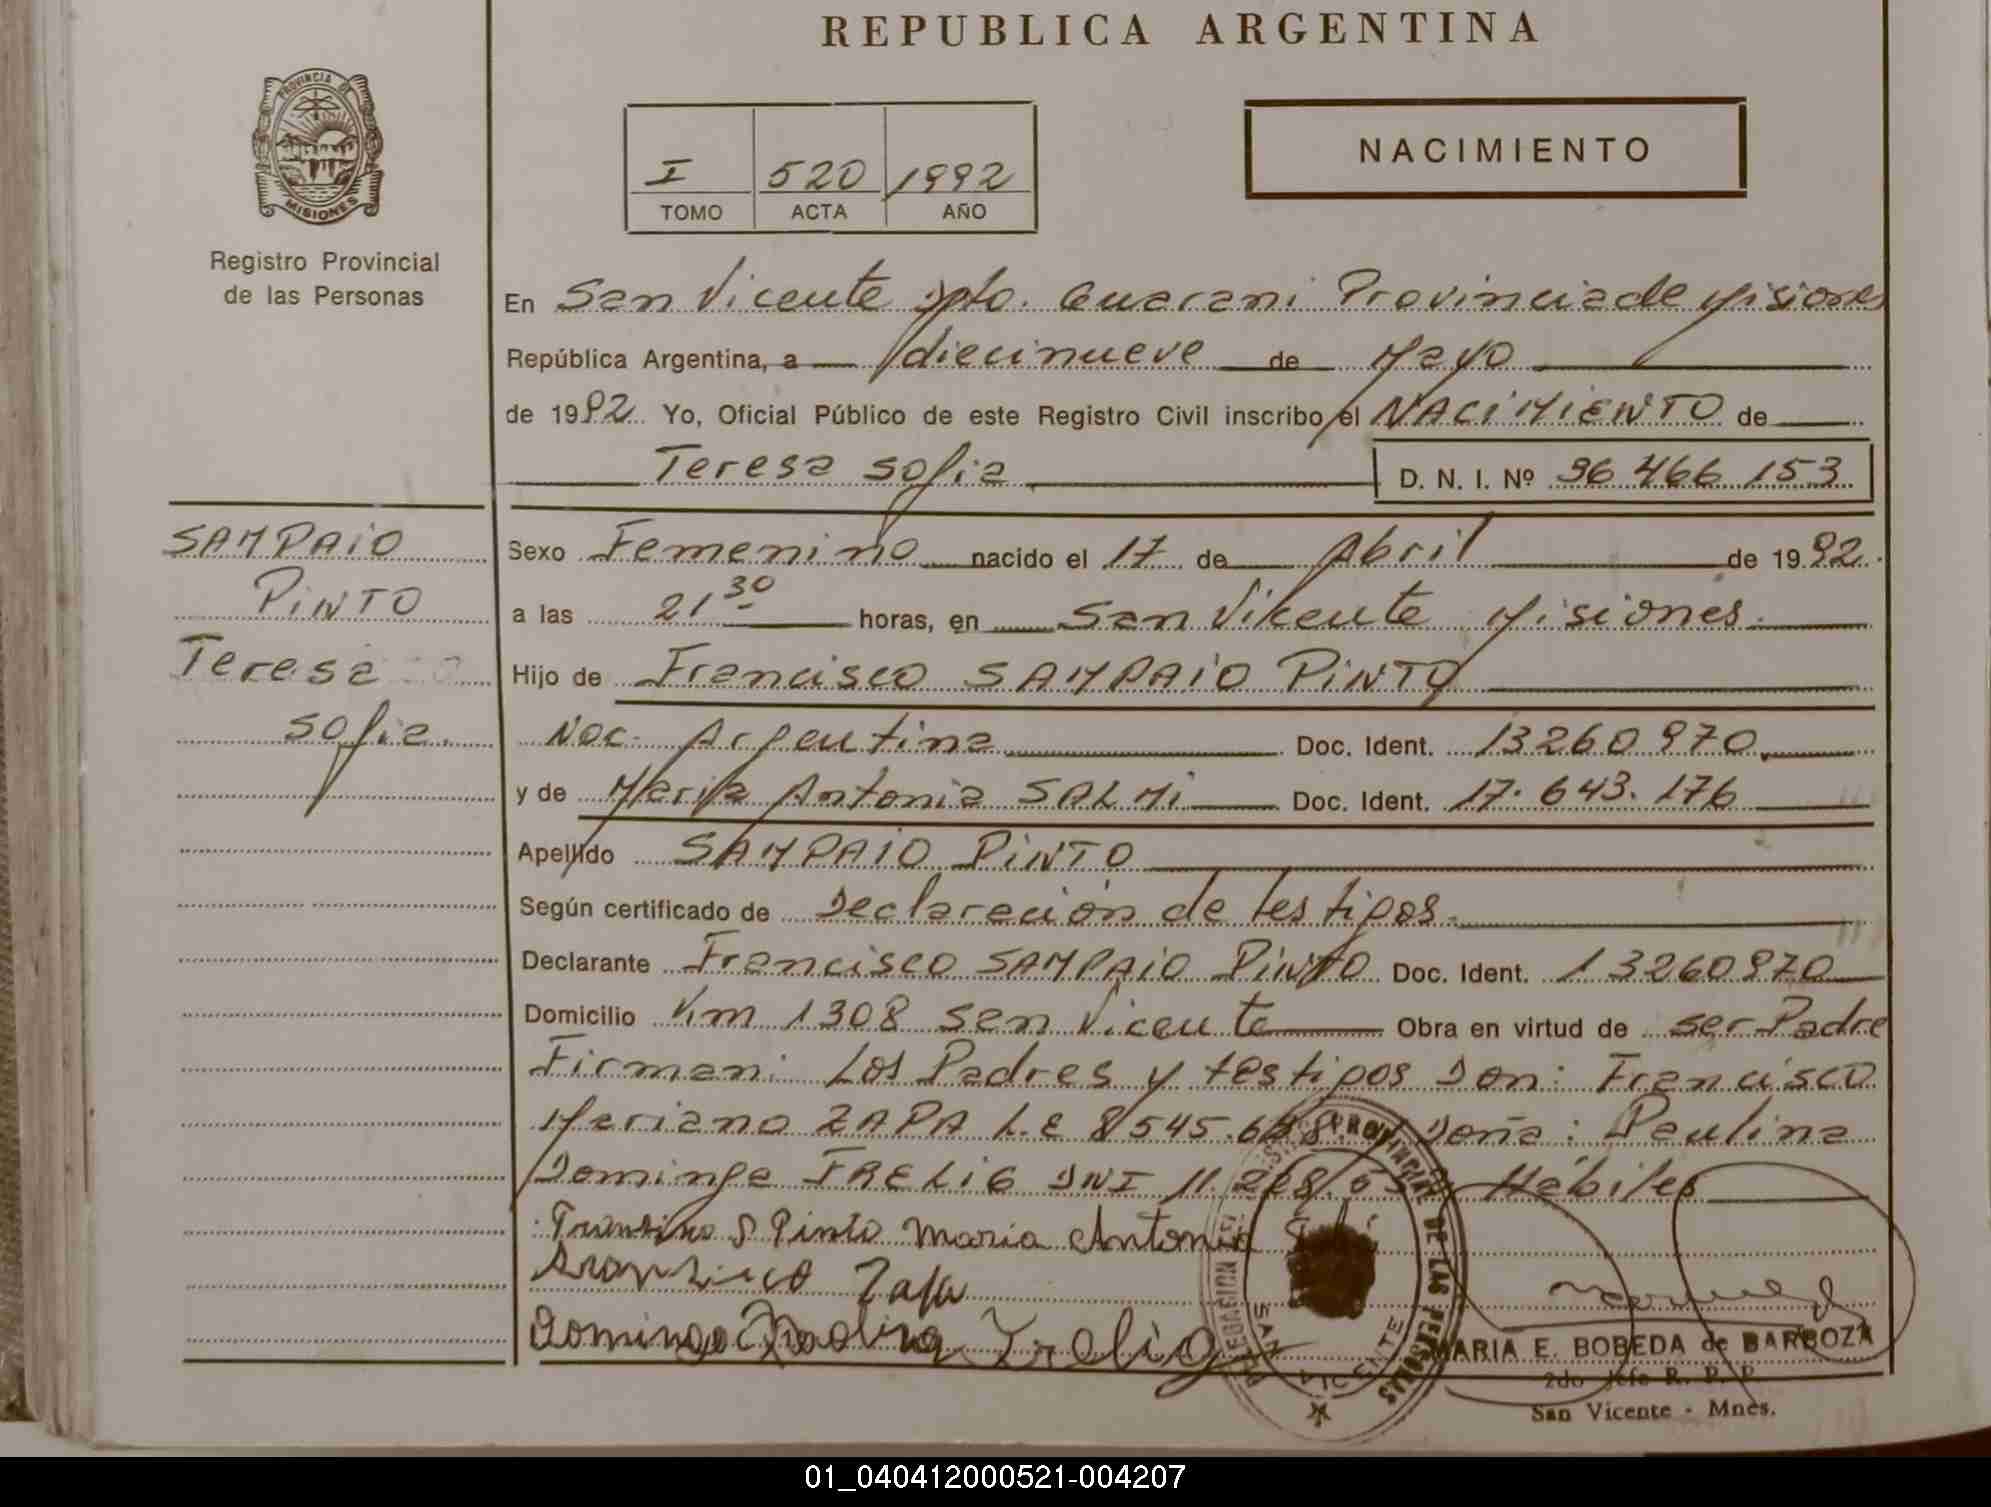 REPUBLICA ARGENTINA
PROVINCIA DE
MISIONES
Registro Provincial
de las Personas
I 520 1992
TOMO ACTA AÑO
NACIMIENTO
En San Vicente Dpto. Guarani Provincia de Misiones
República Argentina, a diecinueve de Mayo
de 1992. Yo, Oficial Público de este Registro Civil inscribo el NACIMIENTO de
Teresa Sofia
D. N. I. Nº 36 466 153
SAMPAIO
PINTO
Teresa
Sofia.
Sexo Femenino nacido el 17 de Abril de 1992.
a las 21 30 horas, en San Vicente Misiones.
Hijo de Francisco SAMPAIO PINTO
Nac. Argentina Doc. Ident. 13260970
y de Maria Antonia SALMI Doc. Ident. 17.643.176
Apellido SAMPAIO PINTO
Según certificado de Declaración de testigos.
Declarante Francisco SAMPAIO PINTO Doc. Ident. 13260970
Domicilio Km 1308 San Vicente Obra en virtud de ser Padre
Firman: Los Padres y testigos Don: Francisco
Mariano ZAPA L.E 8545. Doña: Paulina
Dominga FRELIG DNI 11 Hábiles
S Pinto Maria Antonia
Zapa
Dominga Frelig
DELEGACION PROVINCIAL DE LAS PERSONAS
SAN VICENTE
MARIA E. BOBEDA de BARBOZA
2do Jefe R. P. P.
San Vicente - Mnes.
01_040412000521-004207